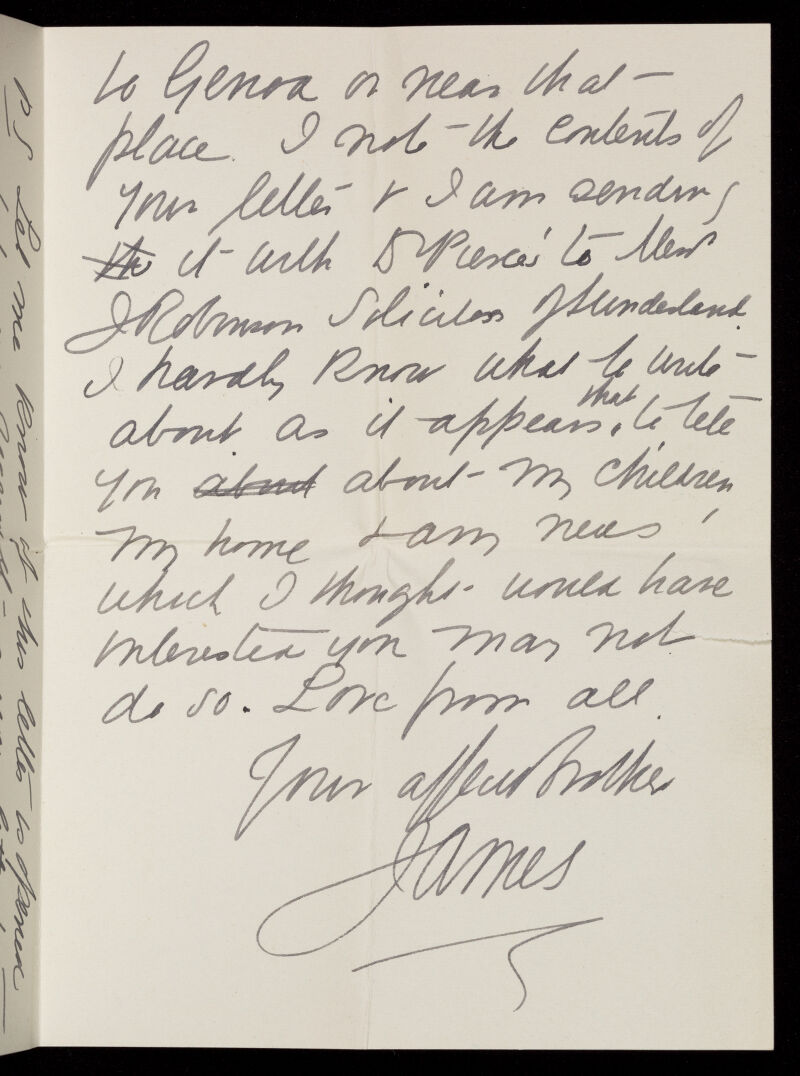 to Genoa or near that
place. I note the contents of
your letter & I am sending
it with Dr Pierce's to Messrs
J Robinson Solicitors of Sunderland.
I hardly know what to write
about as it appears that to tell
you about about my children
my home & any news,
which I thought would have
interested you may not
do so. Love from all.
Your affect Brother
James
PS Let me know if this letter is opened